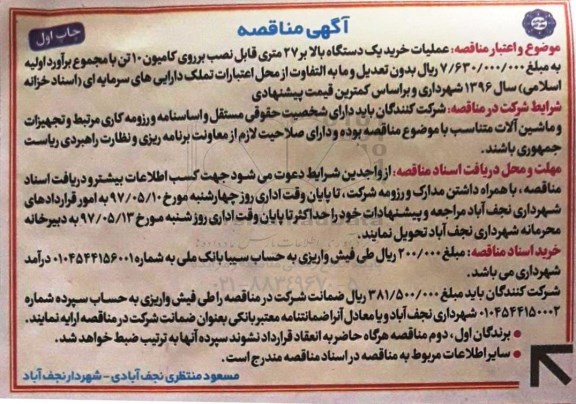 آگهی مناقصه
چاپ اول
موضوع و اعتبار مناقصه: عملیات خرید یک دستگاه بالابر ۲۷ متری قابل نصب بر روی کامیون ۱۰ تن با مجموع برآورد اولیه
به مبلغ ۷/۶۳۰/۰۰۰/۰۰۰ ریال بدون تعدیل و مابه التفاوت از محل اعتبارات تملک دارایی های سرمایه ای (اسناد خزانه
اسلامی) سال ۱۳۹۶ شهرداری و براساس کمترین قیمت پیشنهادی
شرایط شرکت در مناقصه: شرکت کنندگان باید دارای شخصیت حقوقی مستقل و اساسنامه و رزومه کاری مرتبط و تجهیزات
و ماشین آلات متناسب با موضوع مناقصه بوده و دارای صلاحیت لازم از معاونت برنامه ریزی و نظارت راهبردی ریاست
جمهوری باشند.
مهلت و محل دریافت اسناد مناقصه: از واجدین شرایط دعوت می شود جهت کسب اطلاعات بیشتر و دریافت اسناد
مناقصه، با همراه داشتن مدارک و رزومه شرکت، تا پایان وقت اداری روز چهارشنبه مورخ ۹۷/۰۵/۱۰ به امور قراردادهای
شهرداری نجف آباد مراجعه و پیشنهادات خود را حداکثر تا پایان وقت اداری روز شنبه مورخ ۹۷/۰۵/۱۳ به دبیرخانه
محرمانه شهرداری نجف آباد تحویل نمایند.
خرید اسناد مناقصه: مبلغ ۲۰۰/۰۰۰ ریال طی فیش واریزی به حساب سیبا بانک ملی به شماره ۰۱۰۴۵۴۴۱۵۶۰۰۱ درآمد
شهرداری می باشد.
شرکت کنندگان باید مبلغ ۳۸۱/۵۰۰/۰۰۰ ریال ضمانت شرکت در مناقصه را طی فیش واریزی به حساب سپرده شماره
۰۱۰۴۵۴۴۱۵۰۰۰۲ شهرداری نجف آباد و یا معادل آن از ضمانتنامه معتبر بانکی بعنوان ضمانت شرکت در مناقصه ارایه نمایند.
• برندگان اول، دوم مناقصه هرگاه حاضر به انعقاد قرارداد نشوند سپرده آنها به ترتیب ضبط خواهد شد.
• سایر اطلاعات مربوط به مناقصه در اسناد مناقصه مندرج است.
مسعود منتظری نجف آبادی - شهردار نجف آباد